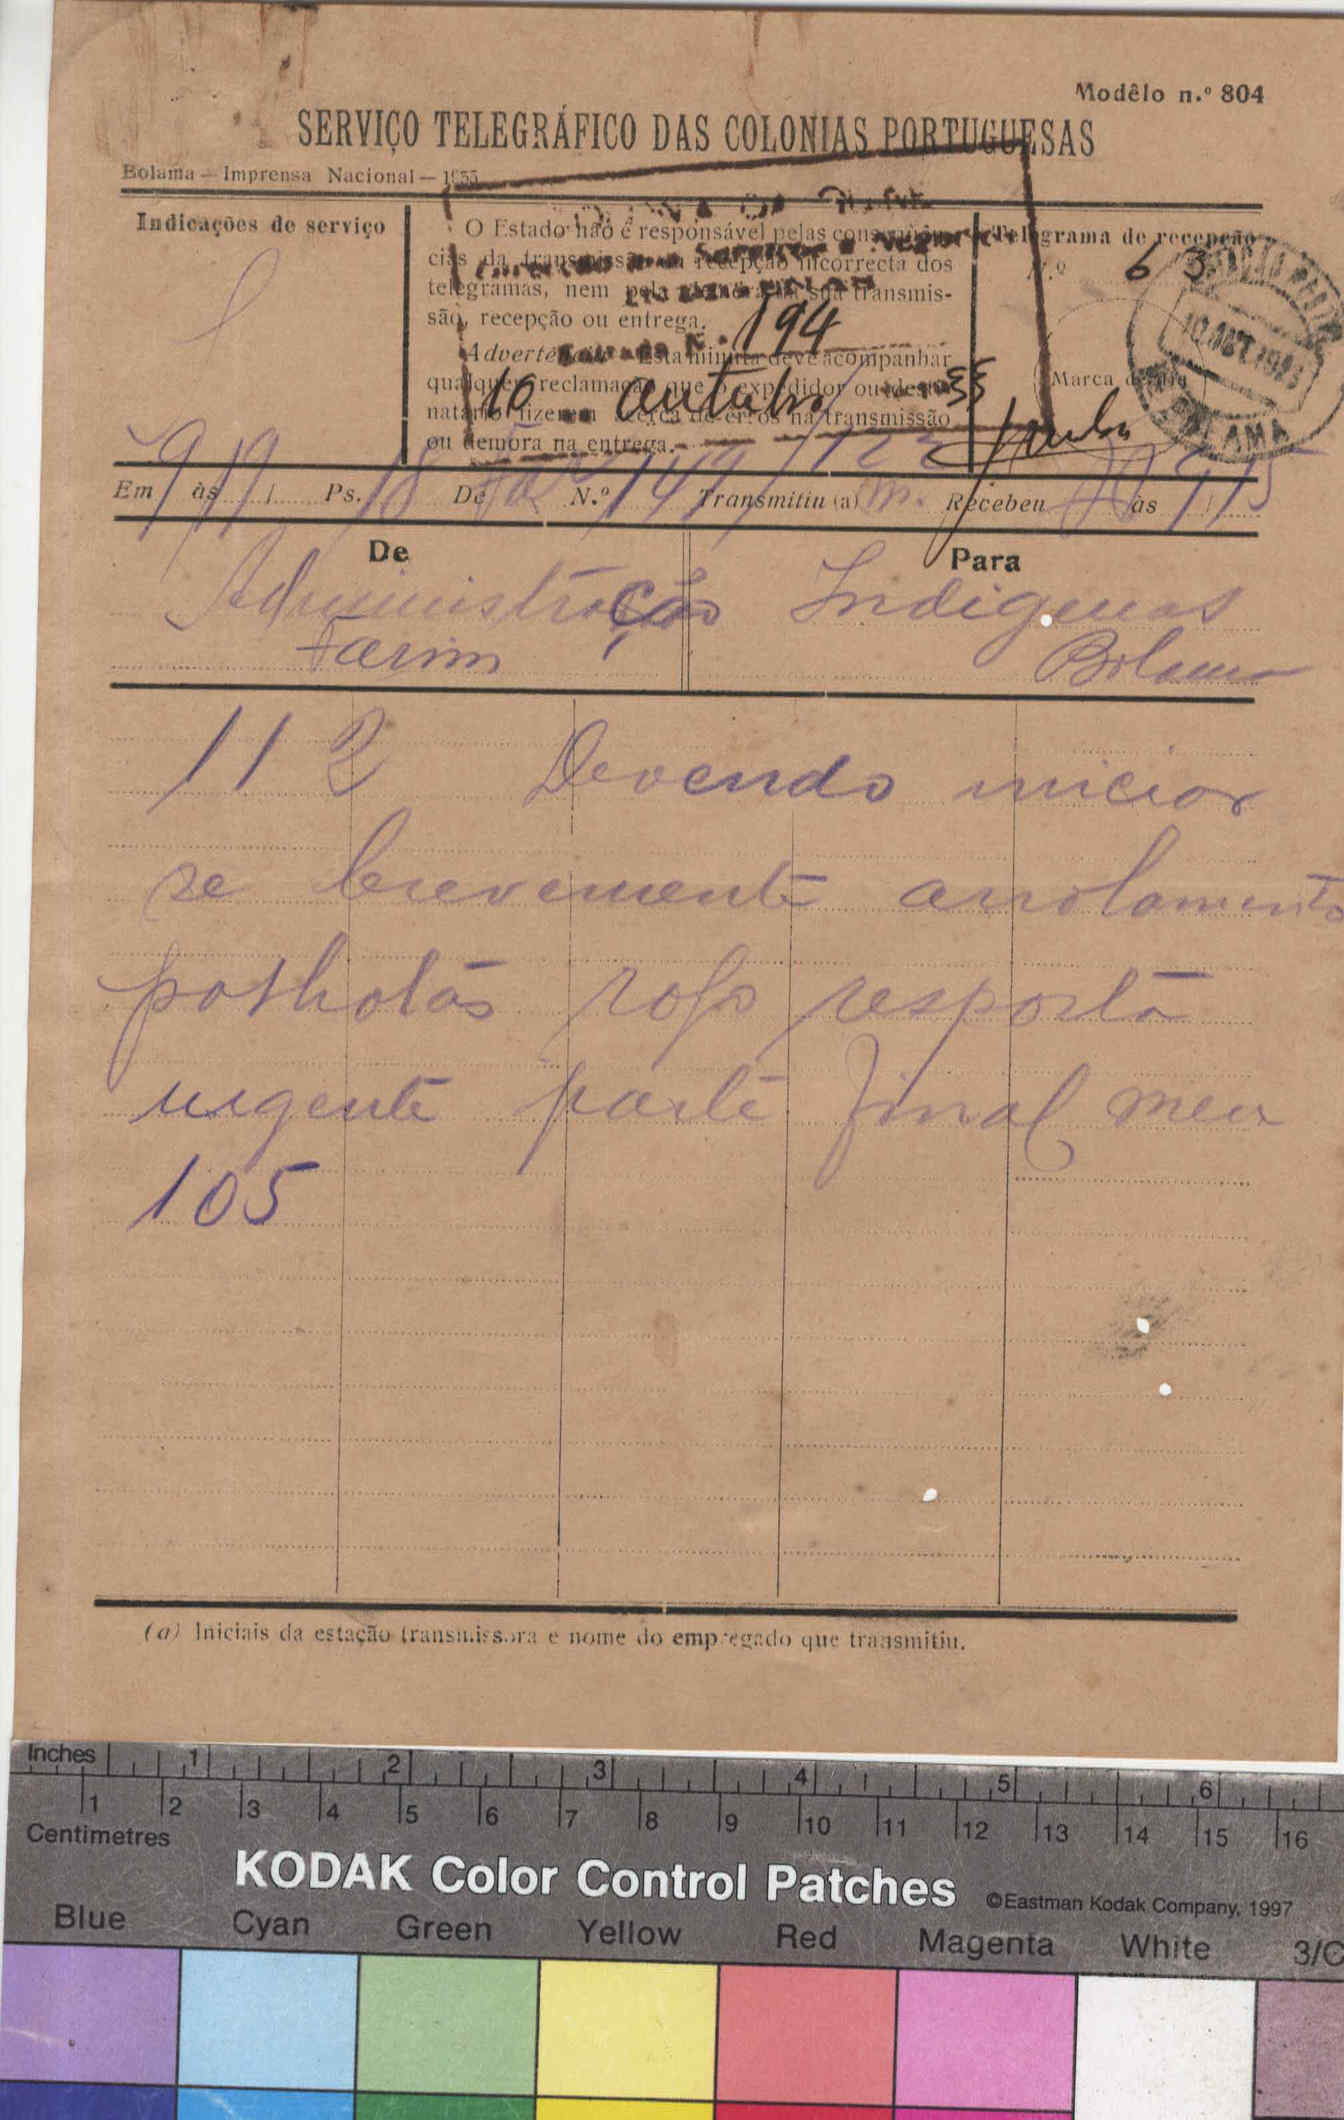 Modêlo n.º 804
SERVIÇO TELEGRÁFICO DAS COLONIAS PORTUGUESAS
Bolama — Imprensa Nacional — 1935
Indicações de serviço
O Estado não é responsável pelas
cias da transmissão recepção incorrecta dos
telegramas, nem pela sua transmis-
são, recepção ou entrega.
Esta minuta deve acompanhar
qualquer reclamação que o expedidor ou
natário fizerem àcerca de erros na transmissão
ou demora na entrega.
194
10 outubro 35
Telegrama de recepção
N.º 63
Marca do dia
BOLAMA
Em 9 às 19 Ps. 18 De N.º 149 Transmitiu (a) m. Recebeu às
De
Para
Administração Indigenas
Farim Bolama
112 Devendo iniciar
se brevemente arrolamento
palhotas rogo resposta
urgente parte final meu
105
(a) Iniciais da estação transmissora e nome do empregado que transmitiu.
Inches 1 2 3 4 5 6
1 2 3 4 5 6 7 8 9 10 11 12 13 14 15 16
Centimetres
KODAK Color Control Patches
©Eastman Kodak Company, 1997
Blue Cyan Green Yellow Red Magenta White 3/C